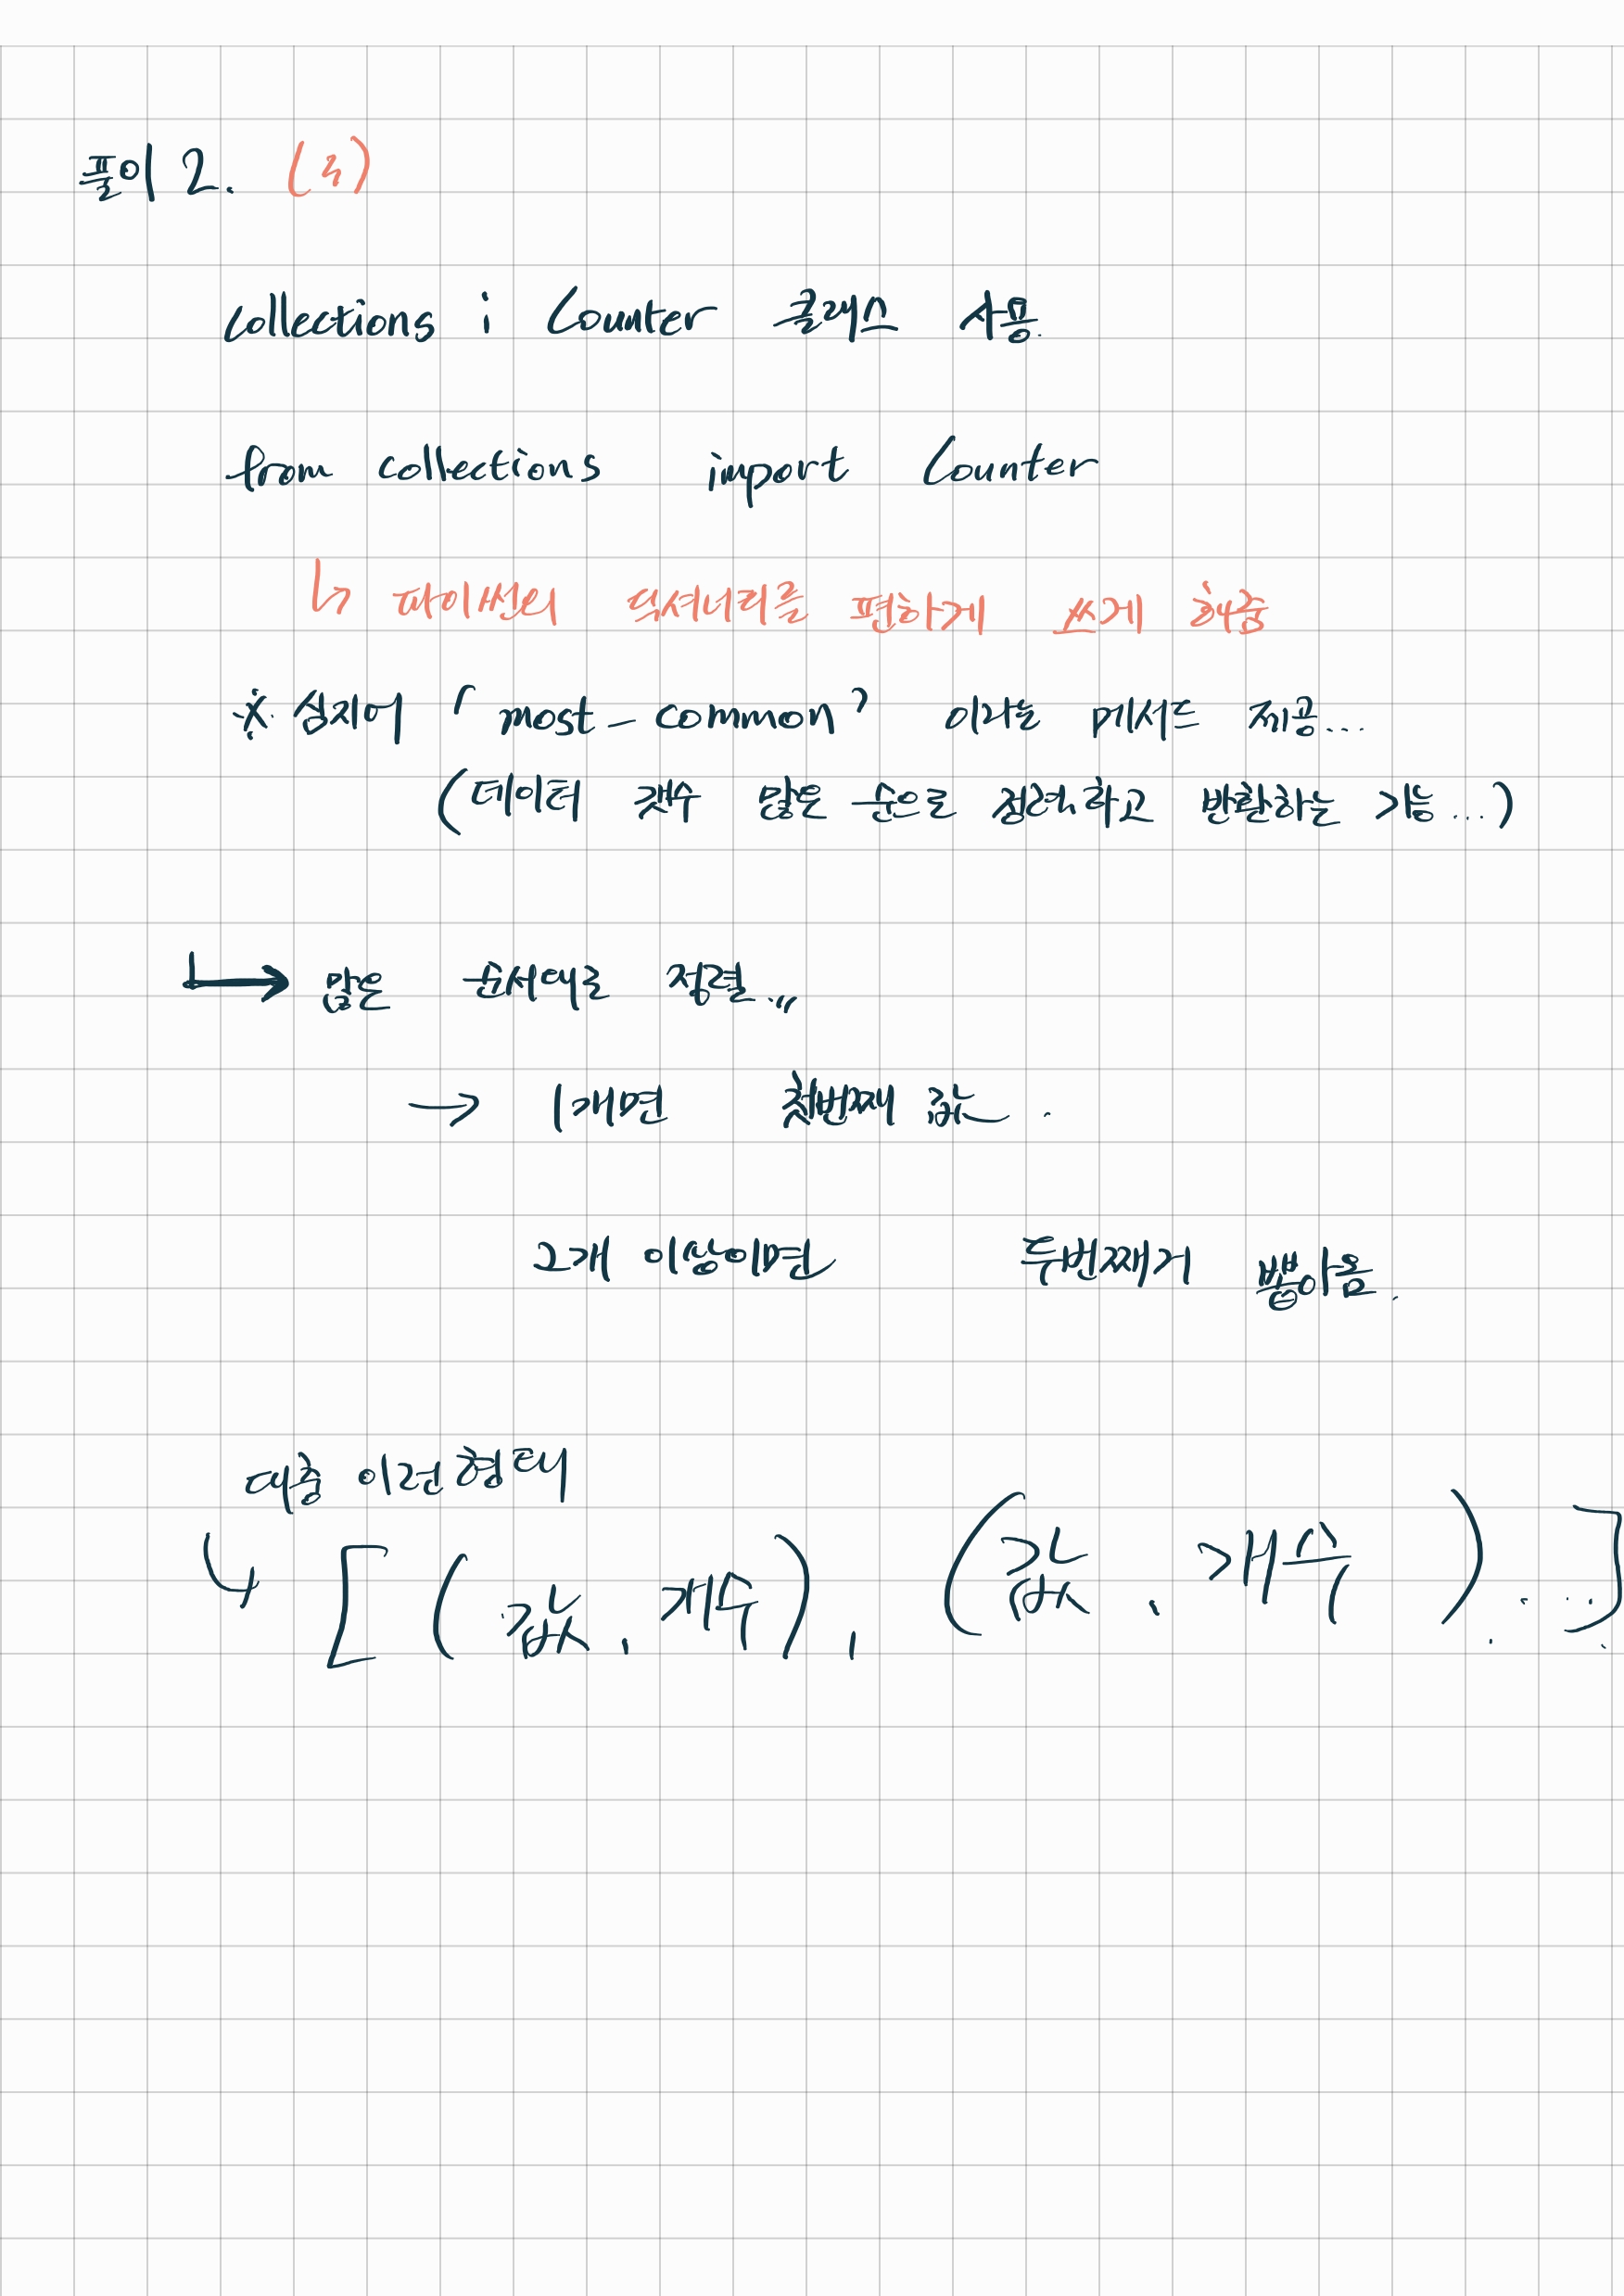 풀이 2. (4)
collections : Counter 클래스 사용.
from collections import Counter
↳ 파이썬의 딕셔너리를 편하게 쓰게 해줌
※ 심지어 「most_common」 이라는 메서드 제공...
(데이터 갯수 많은 순으로 정렬하고 반환하는 기능...)
↳ 많은 순서대로 정렬..,,
→ 1개면 첫번째 값.
2개 이상이면 두번째거 뽑아옴.
대충 이런형태
↳ [(값, 개수), (값, 개수)....]